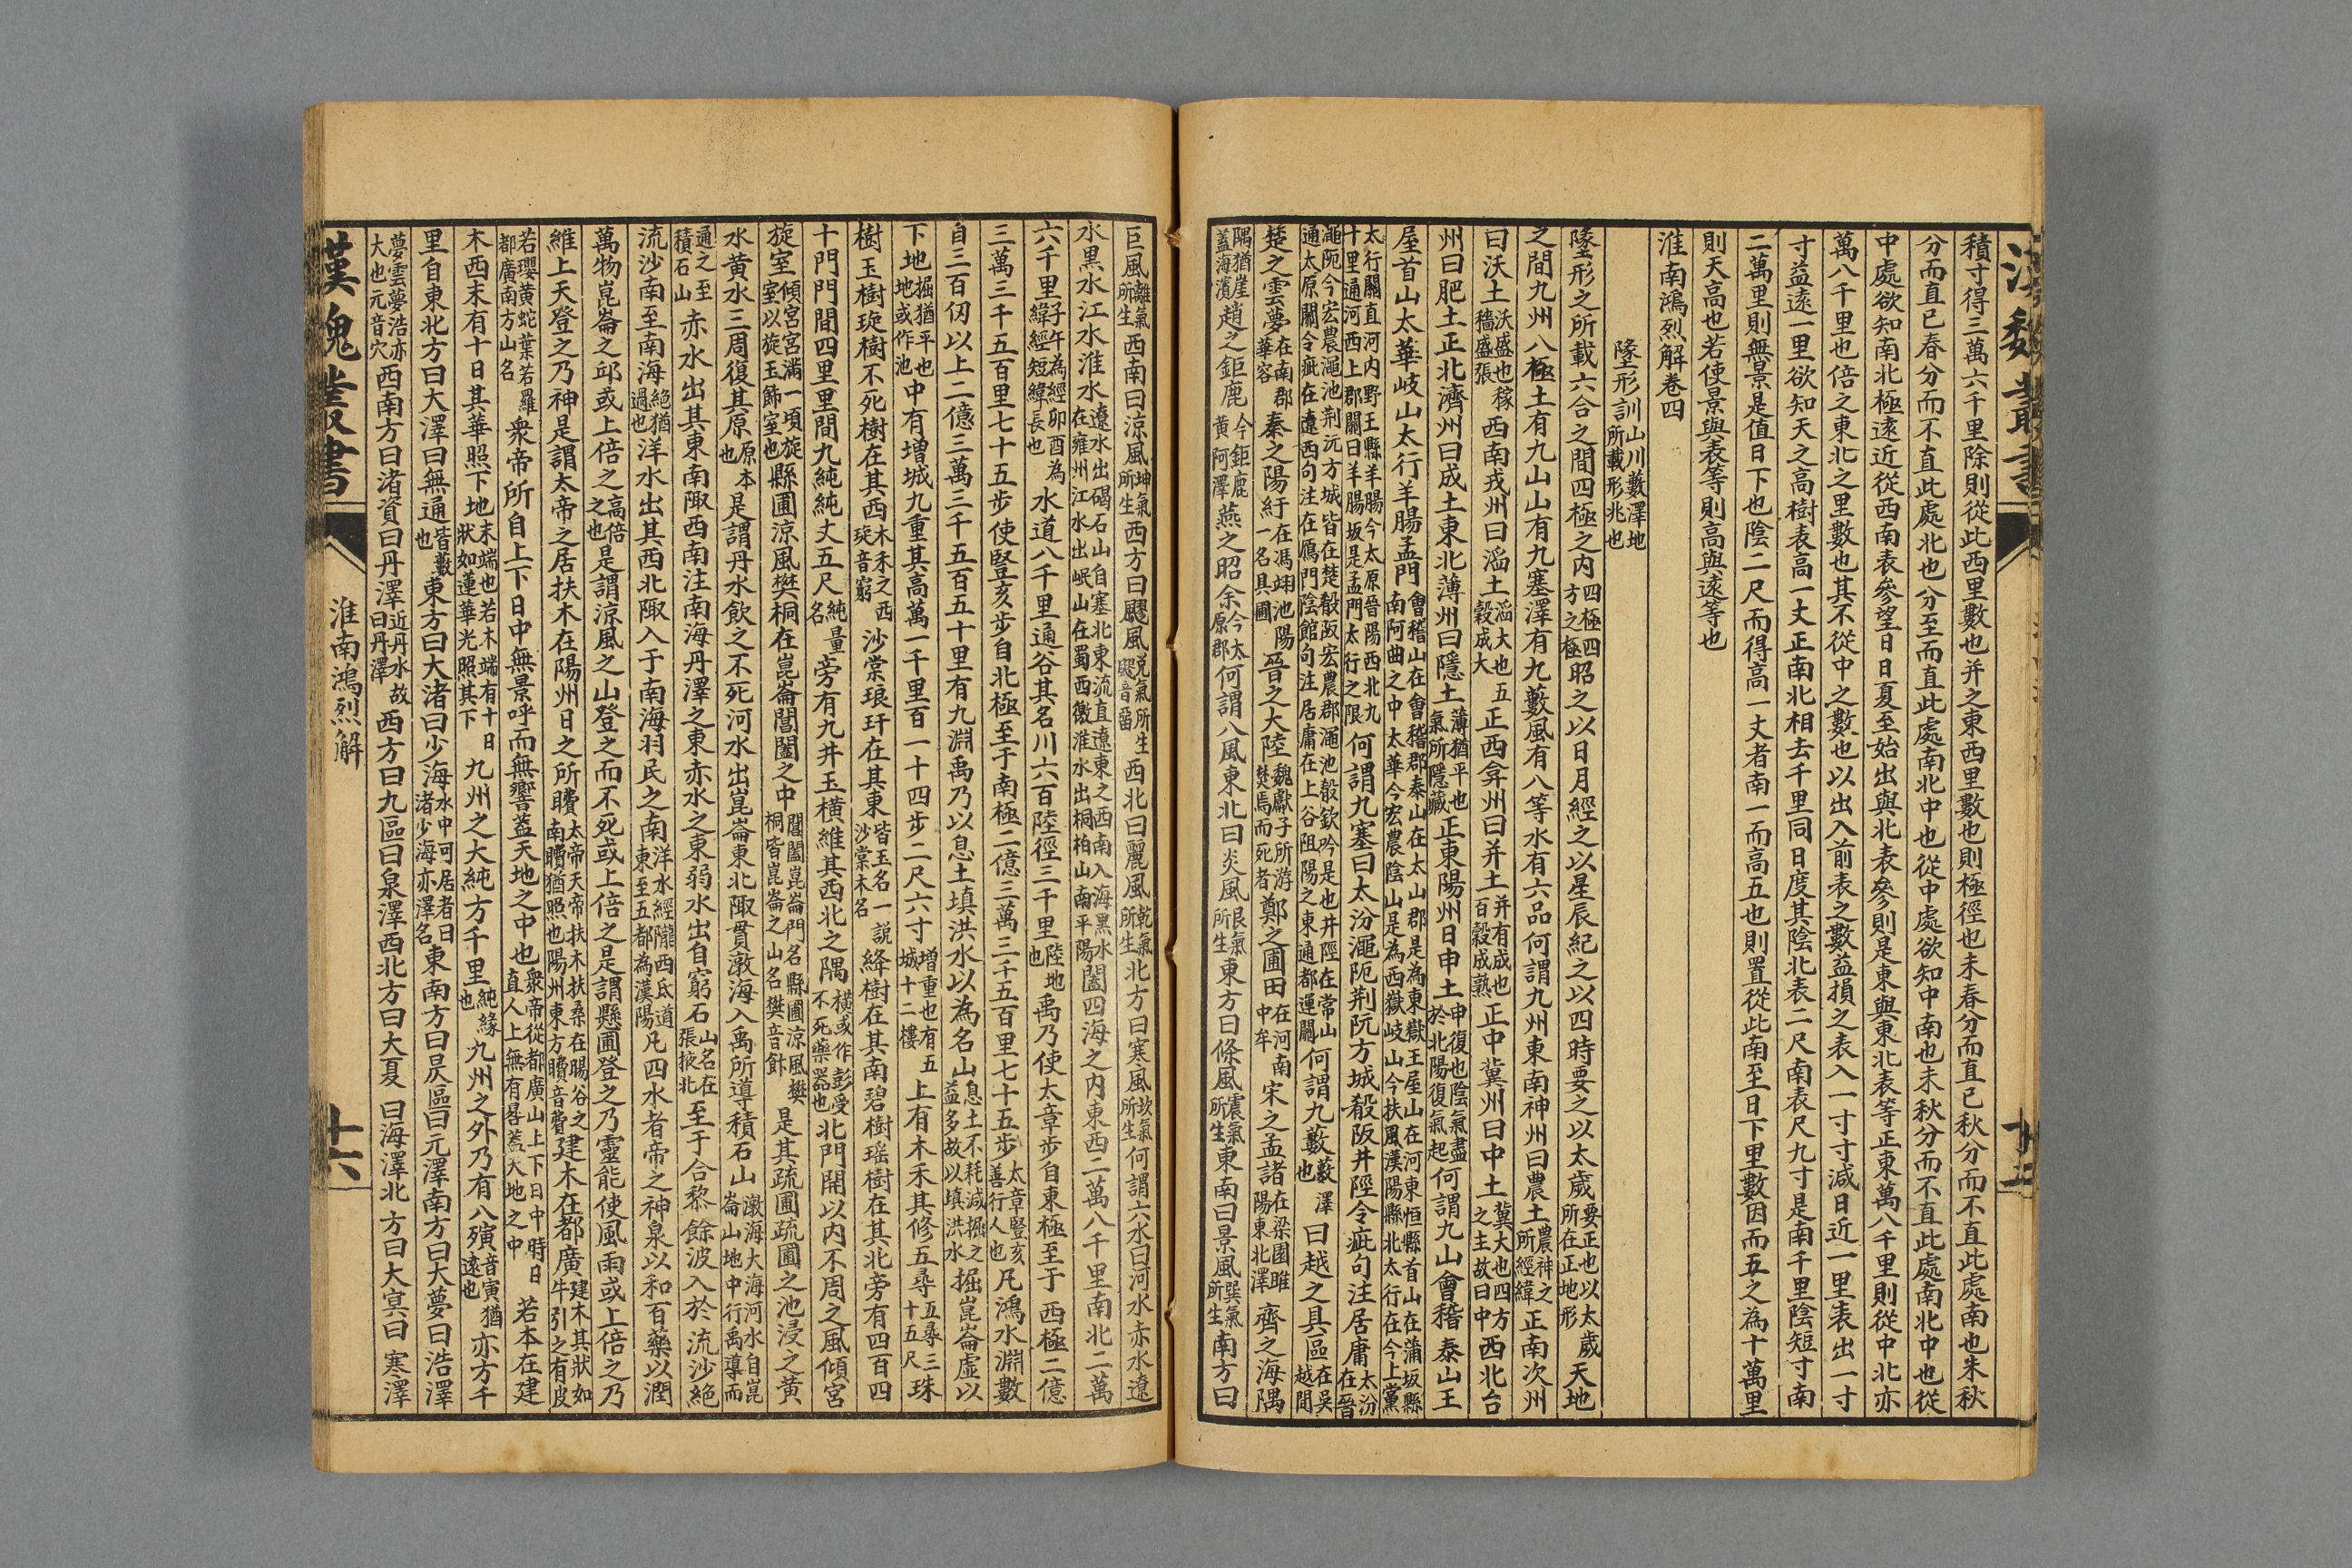 積寸得三萬六千里除則從此西里數也并之東西里數也則極徑也未春分而直已秋分而不直此處南也未秋
分而直已春分而不直此處北也分至而直此處南北中也從中處欲知中南也未秋分而不直此處南北中也從
中處欲知南北極遠近從西南表參望日日夏至始出與北表參則是東與東北表等正東萬八千里則從中北亦
萬八千里也倍之東北之里數也其不從中之數也以出入前表之數益損之表入一寸寸減日近一里表出一寸
寸益遠一里欲知天之高樹表高一丈正南北相去千里同日度其陰北表二尺南表尺九寸是南千里陰短寸南
二萬里則無景是值日下也陰二尺而得高一丈者南一而高五也則置從此南至日下里數因而五之為十萬里
則天高也若使景與表等則高與遠等也
淮南鴻烈解卷四
墬形訓山川藪澤地所載形兆也
墬形之所載六合之間四極之内四極四方之極昭之以日月經之以星辰紀之以四時要之以太歲要正也以太歲所在正地形天地
之間九州八極土有九山山有九塞澤有九藪風有八等水有六品何謂九州東南神州曰農土農神之所經緯正南次州
曰沃土沃盛也稼穡盛張西南戎州曰滔土滔大也五穀成大正西弇州曰并土并有成也百穀成熟正中冀州曰中土冀大也四方之主故曰中西北台
州曰肥土正北濟州曰成土東北薄州曰隱土薄猶平也氣所隱藏正東陽州日申土申復也陰氣盡於北陽復氣起何謂九山會稽泰山王
屋首山太華岐山太行羊腸孟門會稽山在會稽郡泰山在太山郡是為東嶽王屋山在河東恒縣首山在蒲坂縣南阿曲之中太華今宏農陰山是為西嶽岐山今扶風漢陽縣北太行在今上黨
太行關直河内野王縣羊腸今太原晉陽西北九十里通河西上郡關曰羊腸坂是孟門太行之限何謂九塞曰太汾澠阨荆阮方城殽阪井陘令疵句注居庸太汾在晉
澠阨今宏農澠池荆沅方城皆在楚殽阪宏農郡澠池殽欽吟是也井陘在常山通太原關令疵在遼西句注在鴈門陰館句注居庸在上谷阻陽之東通都運關何謂九藪藪澤也曰越之具區在吳越間
楚之雲夢在南郡華容秦之陽紆在馮翊池陽一名具圃晉之大陸魏獻子所游焚焉而死者鄭之圃田在河南中牟宋之孟諸在梁國睢陽東北澤齊之海隅
隅猶崖蓋海濱趙之鉅鹿今鉅鹿黄阿澤燕之昭余今太原郡何謂八風東北曰炎風艮氣所生東方曰條風震氣所生東南曰景風巽氣所生南方曰
巨風離氣所生西南曰涼風坤氣所生西方曰飂風兌氣所生飂音畱西北曰麗風乾氣所生北方曰寒風坎氣所生何謂六水曰河水赤水遼
水黑水江水淮水遼水出碣石山自塞北東流直遼東之西南入海黑水在雍州江水出岷山在蜀西徼淮水出桐柏山南平陽闔四海之内東西二萬八千里南北二萬
六千里子午為經卯酉為緯經短緯長也水道八千里通谷其名川六百陸徑三千里陸地也禹乃使太章步自東極至于西極二億
三萬三千五百里七十五步使豎亥步自北極至于南極二億三萬三千五百里七十五步太章豎亥善行人也凡鴻水淵數
自三百仞以上二億三萬三千五百五十里有九淵禹乃以息土填洪水以為名山息土不耗減掘之益多故以填洪水掘崑崙虛以
下地掘猶平也地或作池中有增城九重其高萬一千里百一十四步二尺六寸增重也有五城十二樓上有木禾其修五尋五尋三十五尺珠
樹玉樹琁樹不死樹在其西木禾之西琁音窮沙棠琅玕在其東皆玉名一說沙棠木名絳樹在其南碧樹瑶樹在其北旁有四百四
十門門間四里里間九純純丈五尺純量名旁有九井玉橫維其西北之隅橫或作彭受不死藥器也北門開以内不周之風傾宮
旋室傾宮宮滿一頃旋室以旋玉飾室也縣圃涼風樊桐在崑崙閶闔之中閶闔崑崙門名縣圃涼風樊桐皆崑崙之山名樊音飰是其疏圃疏圃之池浸之黄
水黄水三周復其原原本也是謂丹水飲之不死河水出崑崙東北陬貫渤海入禹所導積石山渤海大海河水自崑崙山地中行禹導而
通之至積石山赤水出其東南陬西南注南海丹澤之東赤水之東弱水出自窮石山名在張掖北至于合黎餘波入於流沙絶
流沙南至南海絶猶過也洋水出其西北陬入于南海羽民之南洋水經隴西氐道東至五都為漢陽凡四水者帝之神泉以和百藥以潤
萬物崑崙之邱或上倍之高倍之也是謂涼風之山登之而不死或上倍之是謂懸圃登之乃靈能使風雨或上倍之乃
維上天登之乃神是謂太帝之居扶木在陽州日之所曊太帝天帝扶木扶桑在暘谷之南曊猶照也陽州東方曊音費建木在都廣建木其狀如牛引之有皮
若瓔黄蛇葉若羅都廣南方山名衆帝所自上下日中無景呼而無響蓋天地之中也衆帝從都廣山上下日中時日直人上無有晷蓋天地之中若木在建
木西末有十日其華照下地末端也若木端有十日狀如蓮華光照其下九州之大純方千里純緣也九州之外乃有八殥音寅猶遠也亦方千
里自東北方曰大澤曰無通皆藪也東方曰大渚曰少海水中可居者曰渚少海亦澤名東南方曰具區曰元澤南方曰大夢曰浩澤
夢雲夢浩亦大也元音穴西南方曰渚資曰丹澤近丹水故曰丹澤西方曰九區曰泉澤西北方曰大夏曰海澤北方曰大㝠曰寒澤
漢魏叢書
淮南鴻烈解
十六